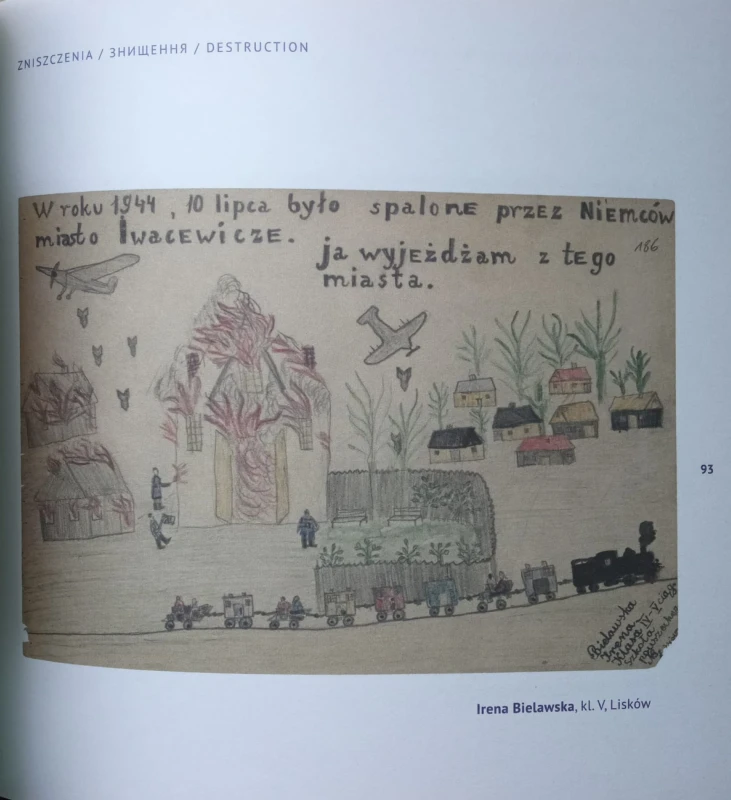 ZNISZCZENIA / ЗНИЩЕННЯ / DESTRUCTION
W roku 1944, 10 lipca było spalone przez Niemców
miasto Iwacewicze.
ja wyjeżdżam z tego
miasta.
186
93
Bielawska
Irena
Klasa IV-V ciąg
Szkoła
Irena Bielawska, kl. V, Lisków